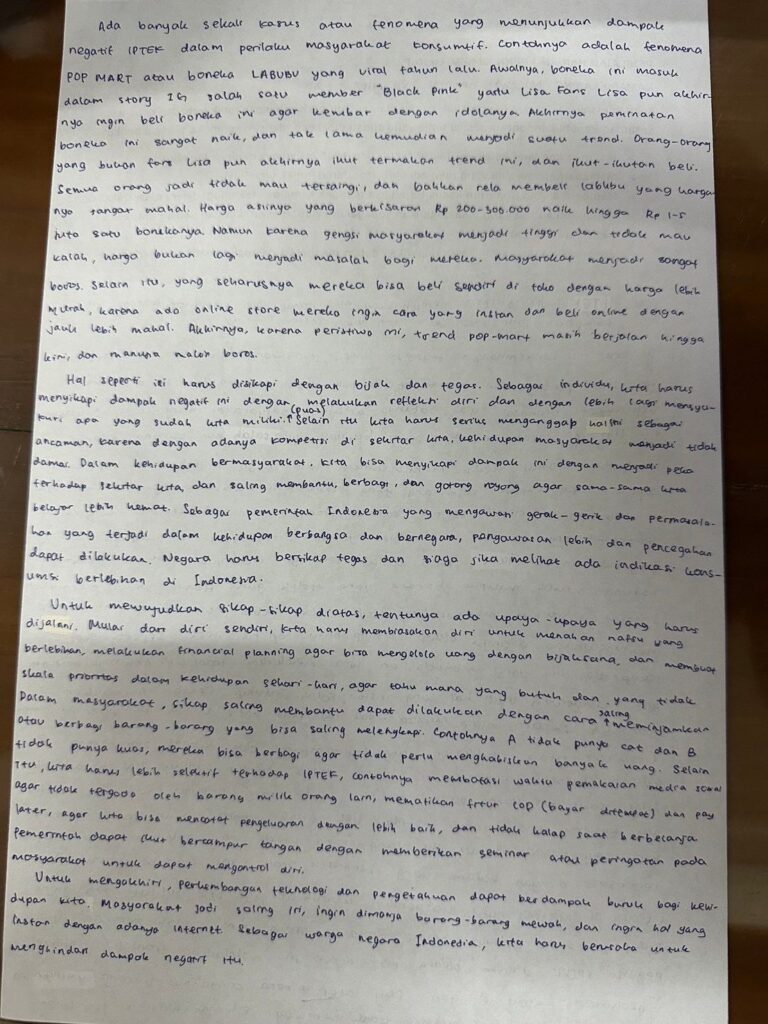 Ada banyak sekali kasus atau fenomena yang menunjukkan dampak
negatif IPTEK dalam perilaku masyarakat konsumtif. Contohnya adalah fenomena
POP MART atau boneka LABUBU yang viral tahun lalu. Awalnya, boneka ini masuk
dalam story IG salah satu member "Black Pink" yaitu Lisa. Fans Lisa pun akhir-
nya ingin beli boneka ini agar kembar dengan idolanya. Akhirnya peminatan
boneka ini sangat naik, dan tak lama kemudian menjadi suatu trend. Orang-orang
yang bukan fans Lisa pun akhirnya ikut termakan trend ini, dan ikut-ikutan beli.
Semua orang jadi tidak mau tersaingi, dan bahkan rela membeli labubu yang harga
nya sangat mahal. Harga aslinya yang berkisaran Rp 200-500.000 naik hingga Rp 1-5
juta satu bonekanya. Namun karena gengsi masyarakat menjadi tinggi dan tidak mau
kalah, harga bukan lagi menjadi masalah bagi mereka. Masyarakat menjadi sangat
boros. Selain itu, yang seharusnya mereka bisa beli sendiri di toko dengan harga lebih
murah, karena ada online store mereka ingin cara yang instan dan beli online dengan
jauh lebih mahal. Akhirnya, karena peristiwa ini, trend pop-mart masih berjalan hingga
kini, dan manusia makin boros.
Hal seperti ini harus disikapi dengan bijak dan tegas. Sebagai individu, kita harus
menyikapi dampak negatif ini dengan, melakukan refleksi diri dan dengan lebih lagi mensyu-
kuri apa yang sudah kita miliki. (puas) Selain itu kita harus serius menganggap hal ini sebagai
ancaman, karena dengan adanya kompetisi di sekitar kita, kehidupan masyarakat menjadi tidak
damai. Dalam kehidupan bermasyarakat, kita bisa menyikapi dampak ini dengan menjadi peka
terhadap sekitar kita, dan saling membantu, berbagi, dan gotong royong agar sama-sama kita
belajar lebih hemat. Sebagai pemerintah Indonesia yang mengawasi gerak-gerik dan permasala-
han yang terjadi dalam kehidupan berbangsa dan bernegara, pengawasan lebih dan pencegahan
dapat dilakukan. Negara harus bersikap tegas dan siaga jika melihat ada indikasi kons-
umsi berlebihan di Indonesia.
Untuk mewujudkan sikap-sikap diatas, tentunya ada upaya-upaya yang harus
dijalani. Mulai dari diri sendiri, kita harus membiasakan diri untuk menahan nafsu yang
berlebihan, melakukan financial planning agar bisa mengelola uang dengan bijaksana, dan membuat
skala prioritas dalam kehidupan sehari-hari, agar tahu mana yang butuh dan yang tidak
Dalam masyarakat, sikap saling membantu dapat dilakukan dengan cara saling meminjamkan
atau berbagi barang-barang yang bisa saling melengkapi. Contohnya A tidak punya cat dan B
tidak punya kuas, mereka bisa berbagi agar tidak perlu menghabiskan banyak uang. Selain
itu, kita harus lebih selektif terhadap IPTEK, contohnya membatasi waktu pemakaian media sosial
agar tidak tergoda oleh barang milik orang lain, mematikan fitur COD (bayar ditempat) dan pay
later, agar kita bisa mencatat pengeluaran dengan lebih baik, dan tidak kalap saat berbelanja
Pemerintah dapat ikut bercampur tangan dengan memberikan seminar atau peringatan pada
masyarakat untuk dapat mengontrol diri.
Untuk mengakhiri, perkembangan teknologi dan pengetahuan dapat berdampak buruk bagi kehi-
dupan kita. Masyarakat jadi saling iri, ingin dimanja barang-barang mewah, dan ingin hal yang
instan dengan adanya internet. Sebagai warga negara Indonesia, kita harus berusaha untuk
menghindari dampak negatif itu.